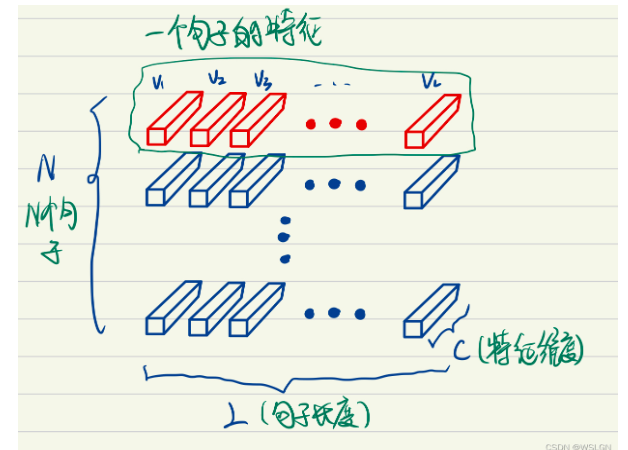 一个句子的特征
V₁ V₂ V₃ ... V_L
N
N个句
子
C (特征维度)
L (句子长度)
CSDN @WSLGN